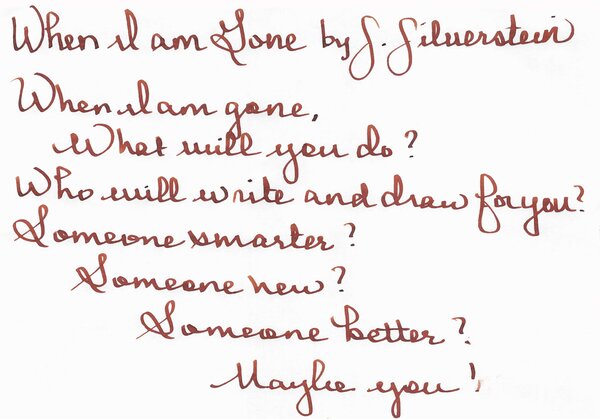 When I am Gone by S. Silverstein
When I am gone,
What will you do?
Who will write and draw for you?
Someone smarter?
Someone new?
Someone better?
Maybe you!